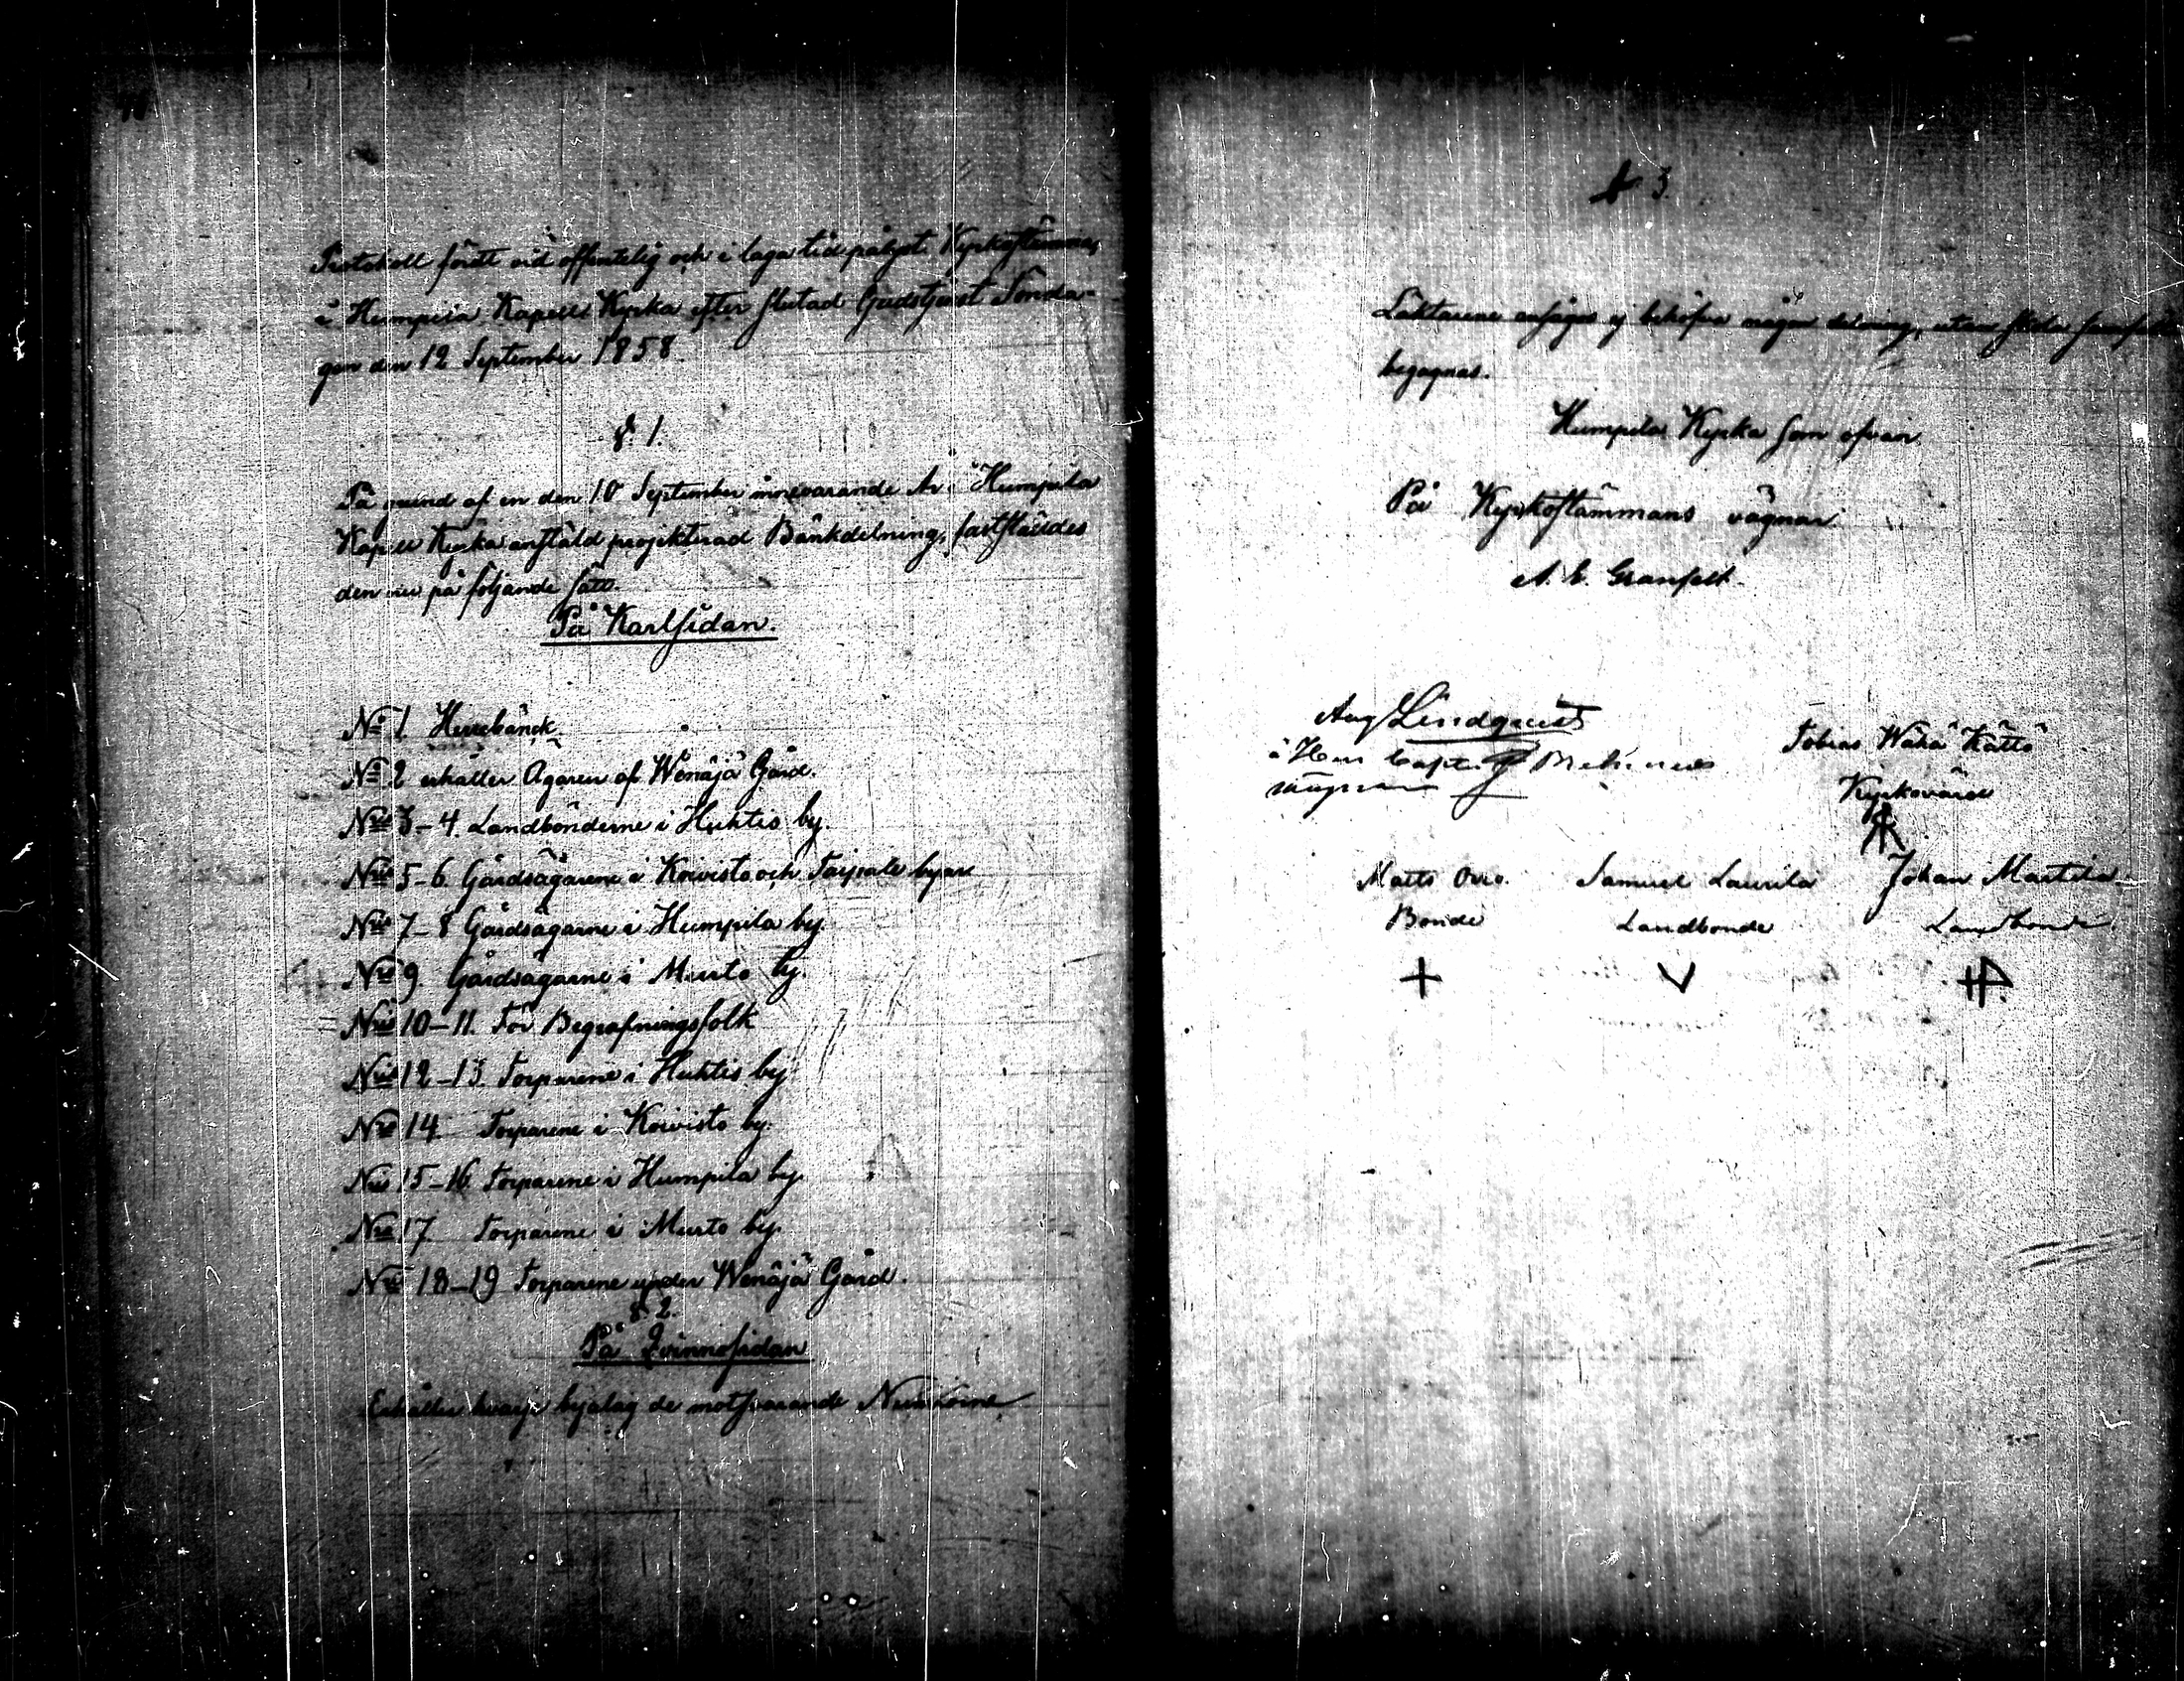 Protokoll fördt vid offentelig och i laga tid pålyst Kyrkostämma,
i Humpila Kapell Kyrka efter slutad Gudstjenst Sönda-
gen den 12 September 1858.
§. 1.
På grund af en den 10 September innevarande År i Humpila
Kapell Kyrka anstäld projekterad Bänkdelning, fastställdes
den nu på följande sätt.
På Karlsidan.
No 1. Herrebänck.
No 2 erhåller Ägaren af Wenäjä Gård.
Nris 3–4. Landbönderne i Huhtis by.
Nris 5–6. Gårdsägarene i Koivisto och Taipale byar
Nris 7–8 Gårdsägarne i Humpila by.
Nro 9. Gårdsägarne i Murto by.
Nris 10–11. För Begrafningsfolk
Nris 12–13. Torparene i Huhtis by
Nro 14. Torparene i Koivisto by.
Nris 15–16. Torparene i Humpila by.
Nro 17. Torparene i Murto by.
Nris 18–19 Torparene under Wenäjä Gård.
§. 2.
På Qvinnosidan
Erhåller hvarje byalag de motsvarande
§ 3.
Läktarene ansågos ej behöfva någon delning, utan skola
begagnas.
Humpila Kyrka som ofvan.
På Kyrkostämmans vägnar
A. E. Granfelt.
Aug Lindquist
å Herr Capt.
vägnar
Tobias Wähä Kättö
Kyrkovärd
Matts Orro.
Samuel Laurila
Johan Marttila
Bonde
Landbonde
Landbonde.